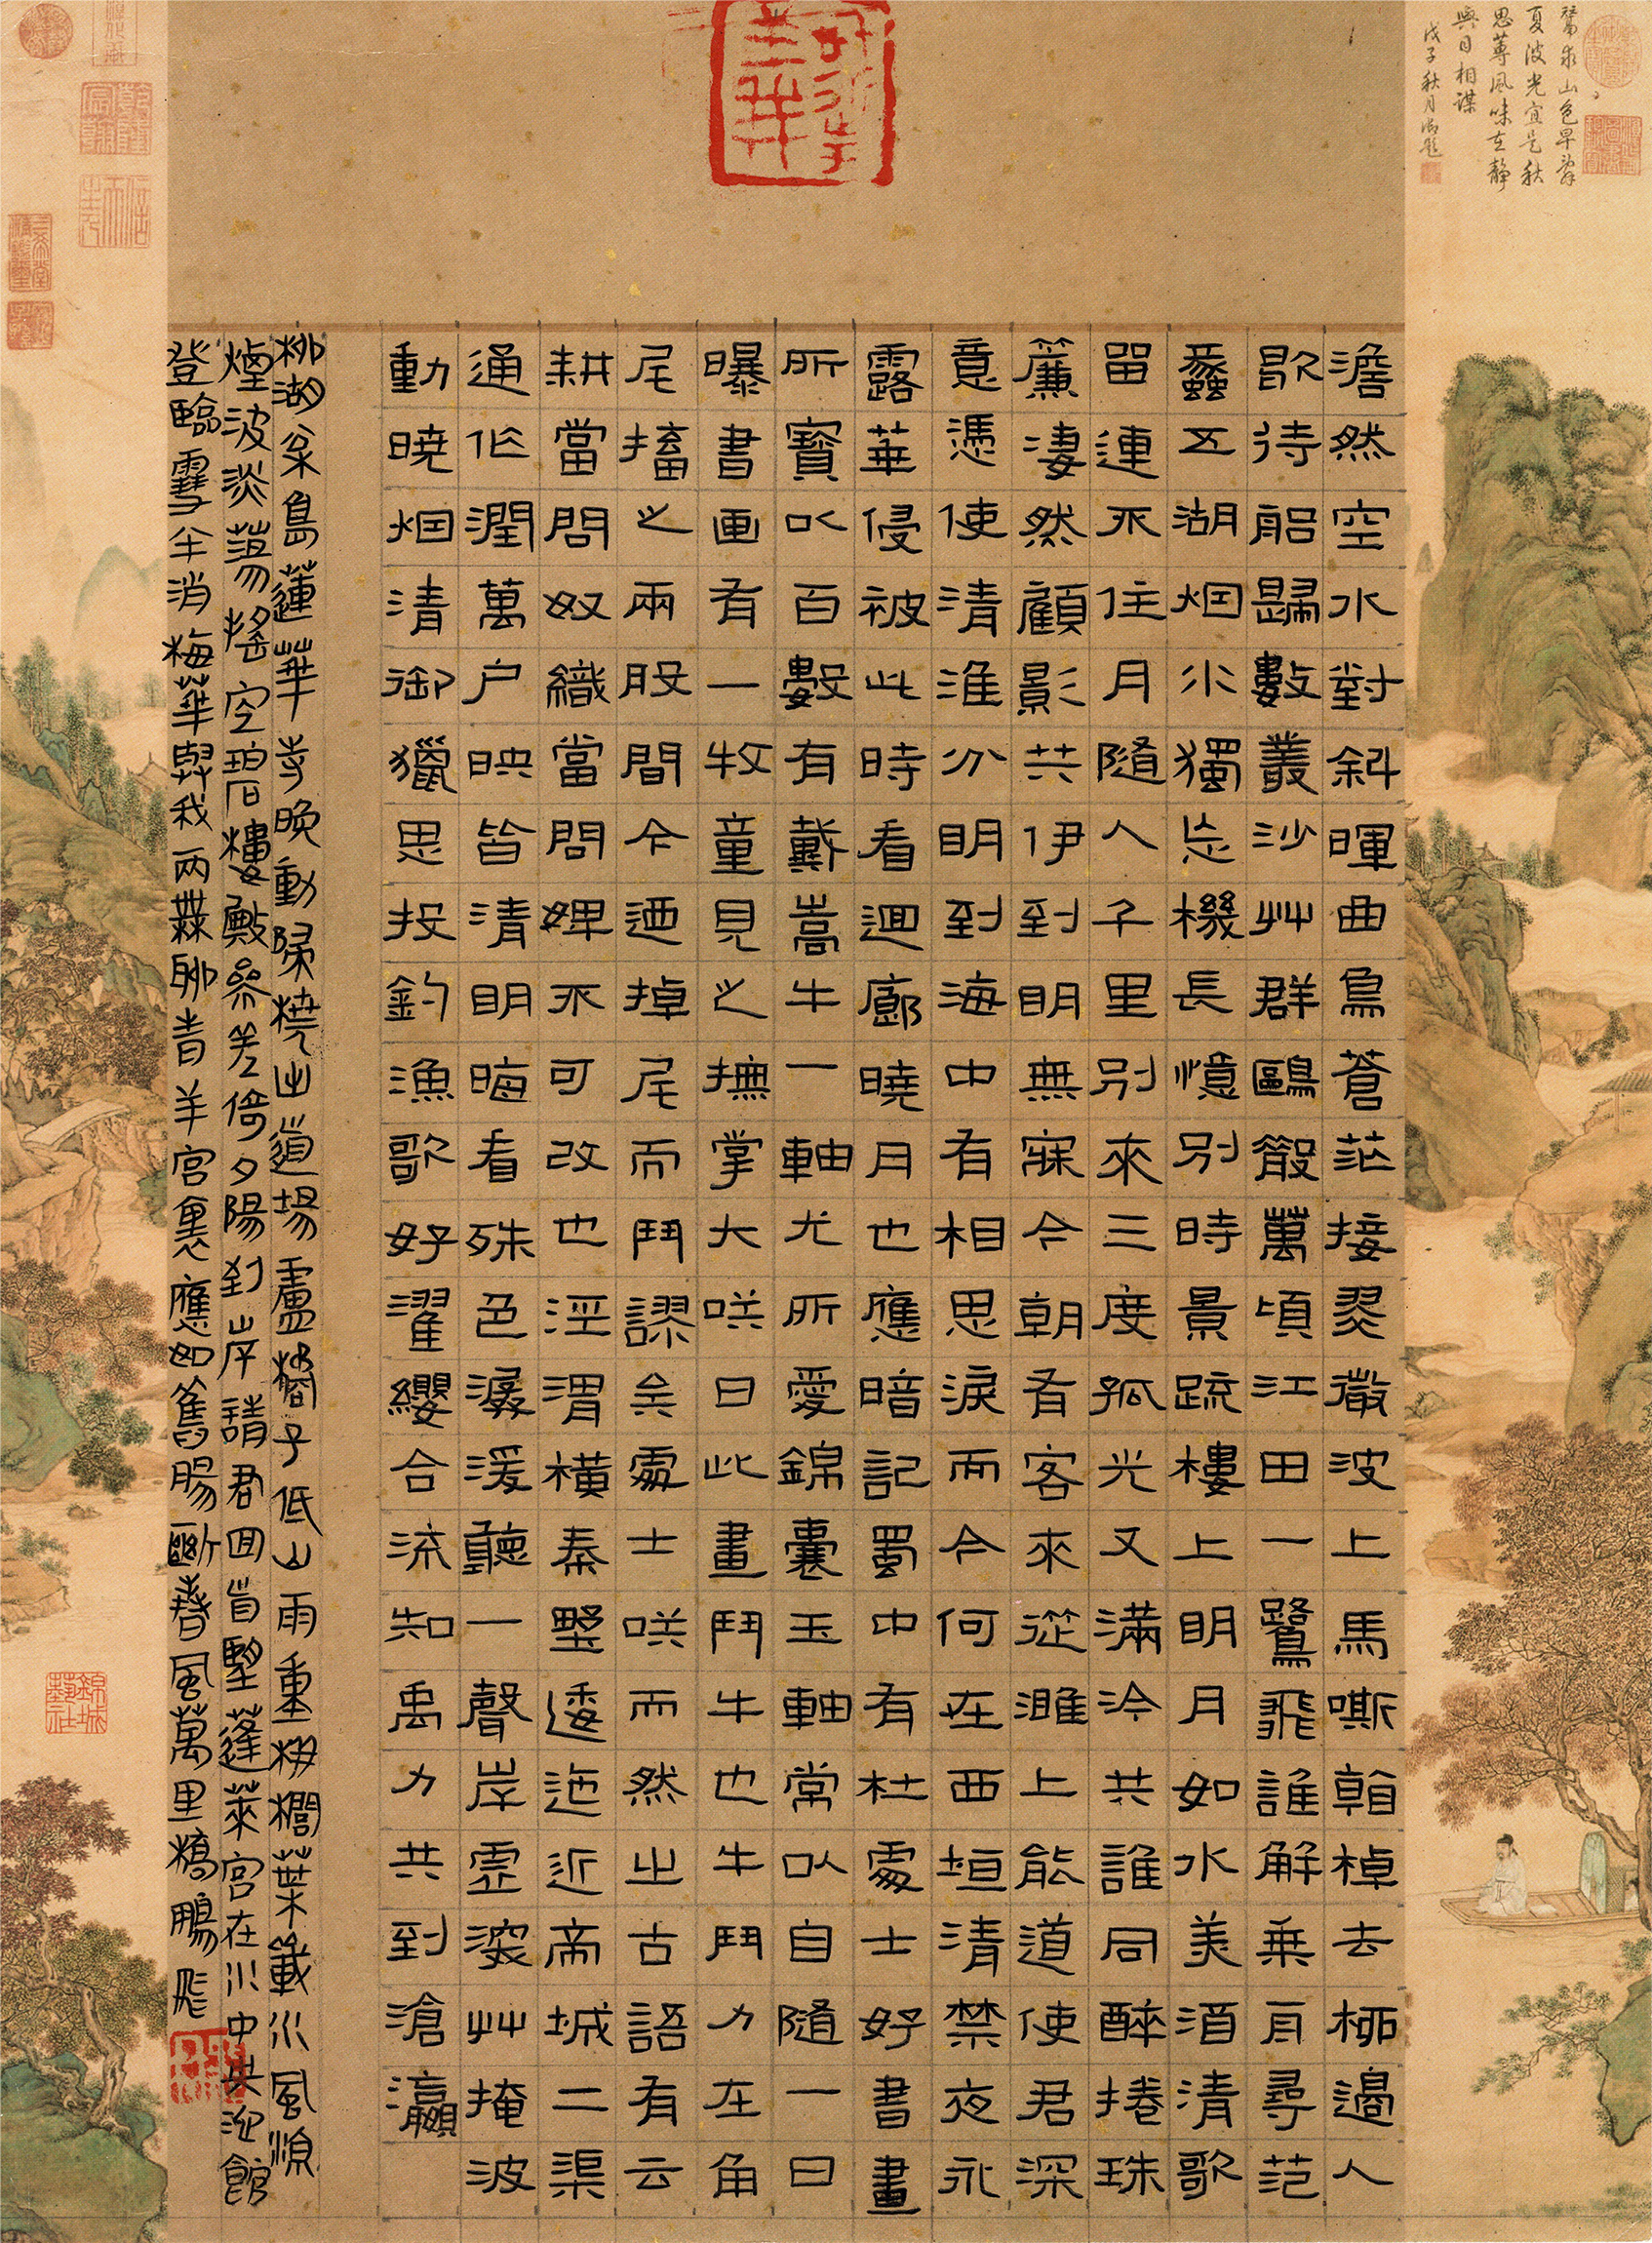 鷺求山色早辭
夏波光宜是秋
思蓴風味在靜
與目相謀
戊子秋月御題
澹然空水對斜暉曲島蒼茫接翠微波上馬嘶看棹去柳邊人
歇待船歸數叢沙艸群鷗散萬頃江田一鷺飛誰解乘舟尋范
蠡五湖烟水獨忘機長憶別時景疏樓上明月如水美酒清歌
留連不住月隨人千里別來三度孤光又滿冷共誰同醉捲珠
簾淒然顧影共伊到明無寐今朝有客來從濉上能道使君深
意憑使清淮分明到海中有相思淚而今何在西垣清禁夜永
露華侵被此時看迴廊曉月也應暗記蜀中有杜處士好書畫
所寶以百數有戴嵩牛一軸尤所愛錦囊玉軸常以自隨一日
曝書画有一牧童見之撫掌大咲曰此畫鬥牛也牛鬥力在角
尾搐之兩股間今迺掉尾而鬥謬矣處士咲而然之古語有云
耕當問奴織當問婢不可改也涇渭橫秦墅逶迤近帝城二渠
通作潤萬户映皆清明晦看殊色潺湲聽一聲岸虛深艸掩波
動曉烟清御獵思投釣漁歌好濯纓合流知禹力共到滄瀛
柳湖深島蓮華寺晚動歸橈出道場盧橘子低山雨重栟櫚葉戰水風涼
煙波淡蕩搖空碧樓殿參差倚夕陽到岸請君回首望蓬萊宮在水中央池館
登臨雪半消梅華與我兩無聊青羊宮裏應如舊腸斷春風萬里橋鵬飛